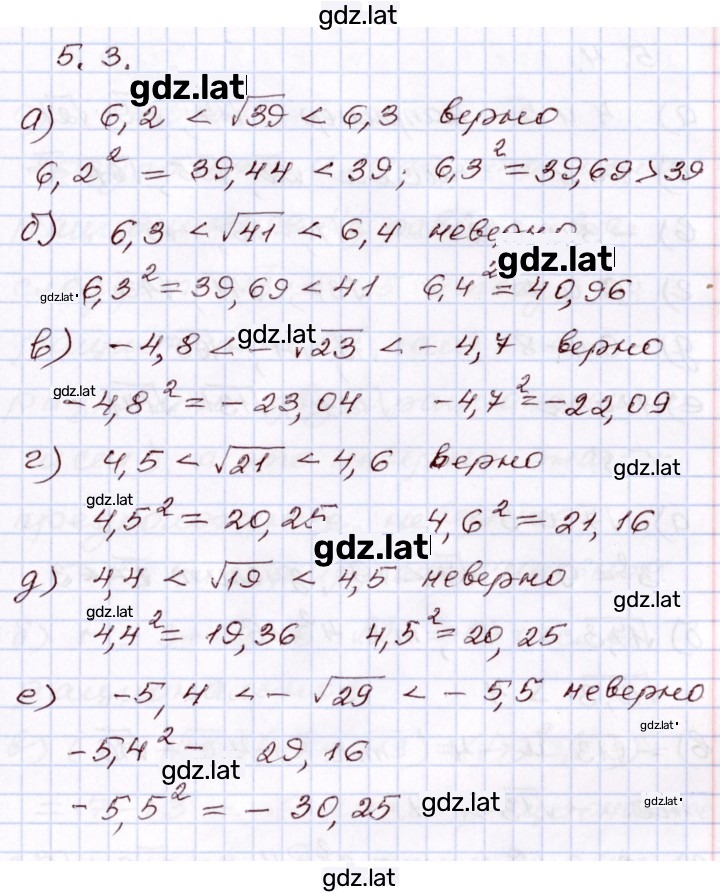 gdz.lat
5. 3.
gdz.lat
а) 6,2 < √39 < 6,3 верно
6,2² = 39,44 < 39; 6,3² = 39,69 > 39
б) 6,3 < √41 < 6,4 неверно
gdz.lat
gdz.lat 6,3² = 39,69 < 41 6,4² = 40,96
gdz.lat
в) -4,8 < -√23 < -4,7 верно
gdz.lat
-4,8² = -23,04 -4,7² = -22,09
г) 4,5 < √21 < 4,6 верно gdz.lat
gdz.lat
4,5² = 20,25 4,6² = 21,16
gdz.lat
д) 4,4 < √19 < 4,5 неверно
gdz.lat gdz.lat
4,4² = 19,36 4,5² = 20,25
е) -5,4 < -√29 < -5,5 неверно
gdz.lat
-5,4² - 29,16
gdz.lat
-5,5² = -30,25 gdz.lat gdz.lat
gdz.lat